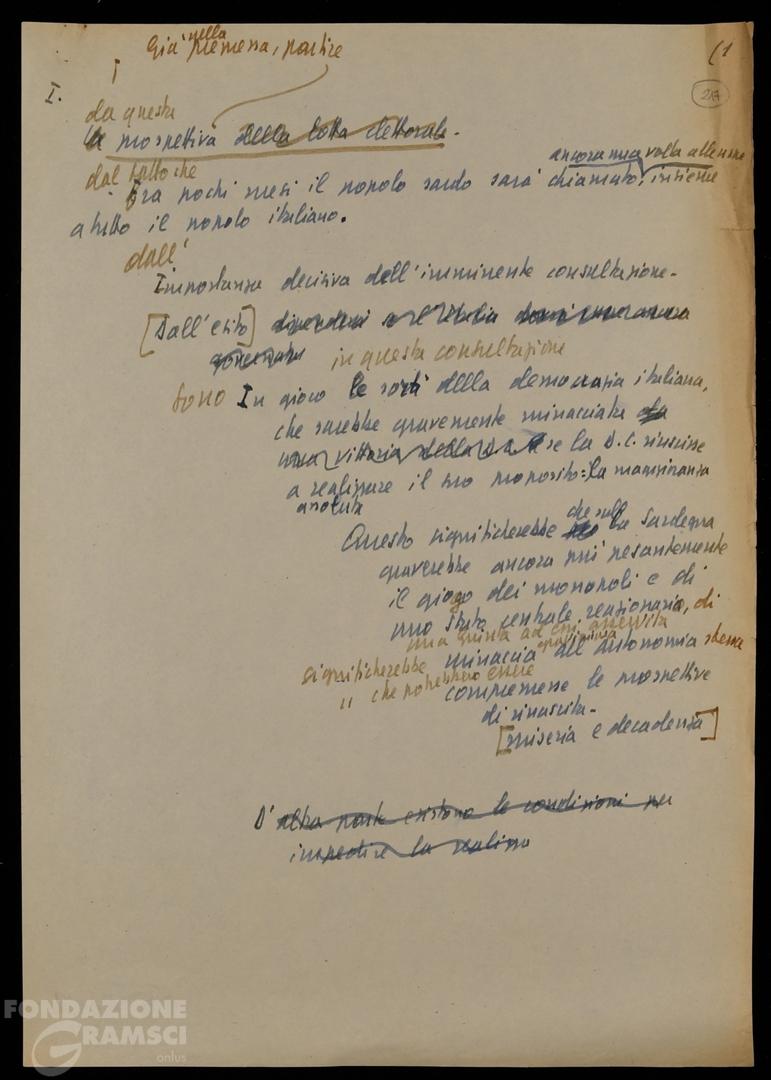 Già nella premessa, partire
(1
217
I.
da questa
la prospettiva della lotta elettorale.
dal fatto che
ancora una volta alle urne
Fra pochi mesi il popolo sardo sarà chiamato, insieme
a tutto il popolo italiano.
dall'
Importanza decisiva dell'imminente consultazione.
[Dall'esito] dipenderà se l'Italia
in questa consultazione
sono In gioco le sorti della democrazia italiana,
che sarebbe gravemente minacciata da
una vittoria della D.C. se la D.C. riuscisse
a realizzare il suo proposito: la maggioranza
assoluta
Questo significherebbe che sulla Sardegna
graverebbe ancora più pesantemente
il giogo dei monopoli e di
uno stato centrale reazionario, di
una giunta ad essi asservita
significherebbe gravissima minaccia all'autonomia stessa
" che potrebbero essere
compromesse le prospettive
di rinascita.
[miseria e decadenza]
D'altra parte esistono le condizioni per
impedire la realizza
FONDAZIONE
GRAMSCI
onlus